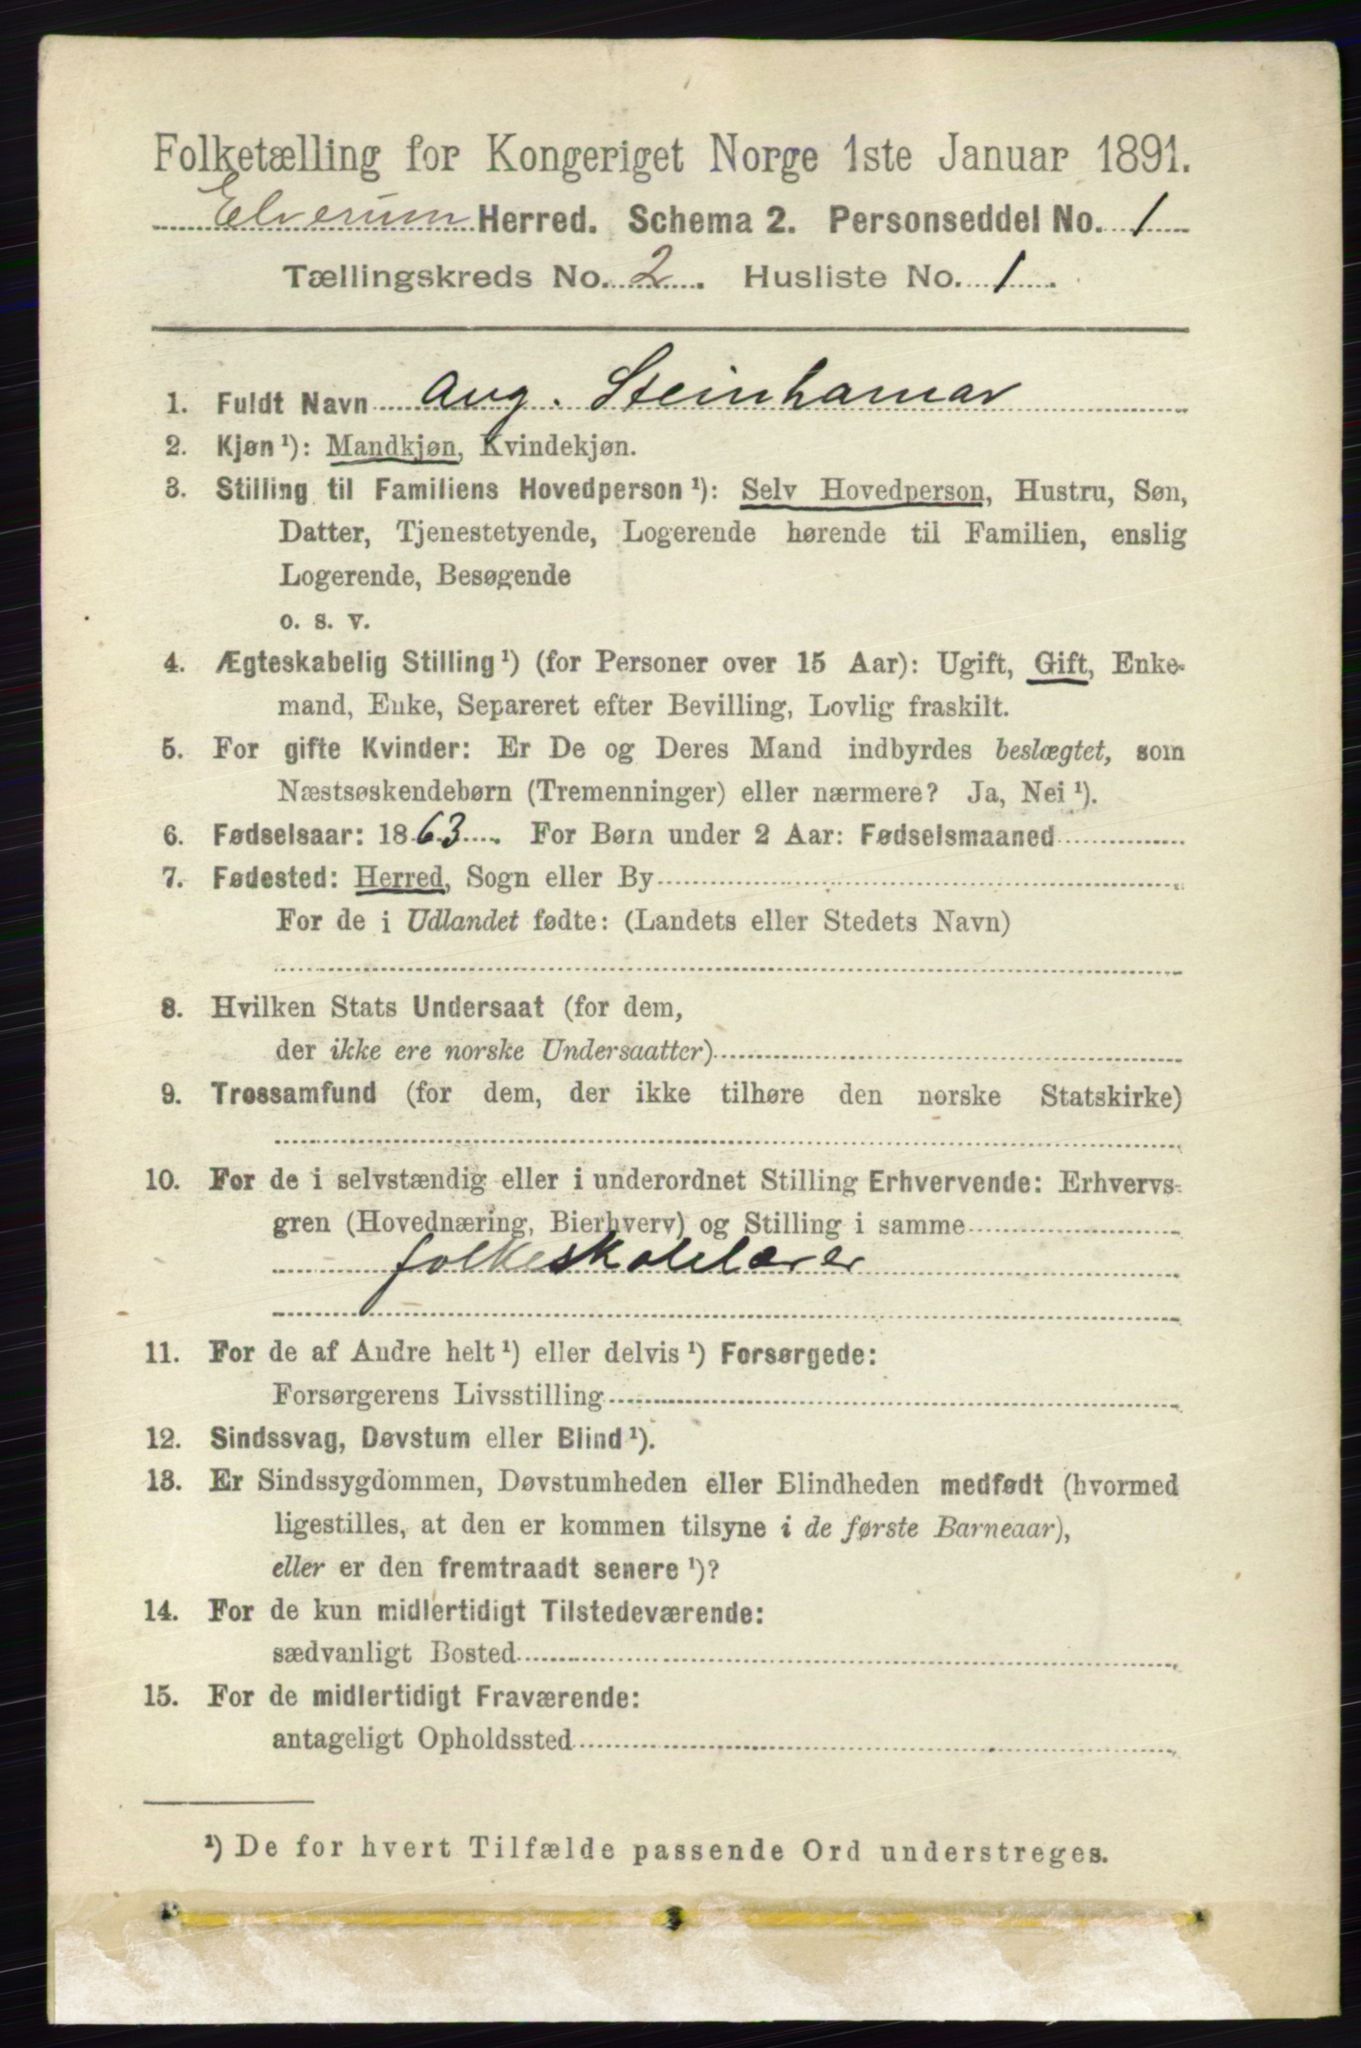 Folketælling for Kongeriget Norge 1ste Januar 1891.
Elverum Herred. Schema 2. Personseddel No. 1
Tællingskreds No. 2. Husliste No. 1.
1. Fuldt Navn Aug. Steinhamar
2. Kjøn¹): Mandkjøn, Kvindekjøn.
3. Stilling til Familiens Hovedperson¹): Selv Hovedperson, Hustru, Søn,
Datter, Tjenestetyende, Logerende hørende til Familien, enslig
Logerende, Besøgende
o. s. v.
4. Ægteskabelig Stilling¹) (for Personer over 15 Aar): Ugift, Gift, Enke-
mand, Enke, Separeret efter Bevilling, Lovlig fraskilt.
5. For gifte Kvinder: Er De og Deres Mand indbyrdes beslægtet, som
Næstsøskendebørn (Tremenninger) eller nærmere? Ja, Nei¹).
6. Fødselsaar: 1863. For Børn under 2 Aar: Fødselsmaaned
7. Fødested: Herred, Sogn eller By
For de i Udlandet fødte: (Landets eller Stedets Navn)
8. Hvilken Stats Undersaat (for dem,
der ikke ere norske Undersaatter)
9. Trossamfund (for dem, der ikke tilhøre den norske Statskirke)
10. For de i selvstændig eller i underordnet Stilling Erhvervende: Erhvervs-
gren (Hovednæring, Bierhverv) og Stilling i samme
folkeskolelærer
11. For de af Andre helt¹) eller delvis¹) Forsørgede:
Forsørgerens Livsstilling
12. Sindssvag, Døvstum eller Blind¹).
13. Er Sindssygdommen, Døvstumheden eller Blindheden medfødt (hvormed
ligestilles, at den er kommen tilsyne i de første Barneaar),
eller er den fremtraadt senere¹)?
14. For de kun midlertidigt Tilstedeværende:
sædvanligt Bosted
15. For de midlertidigt Fraværende:
antageligt Opholdssted
¹) De for hvert Tilfælde passende Ord understreges.